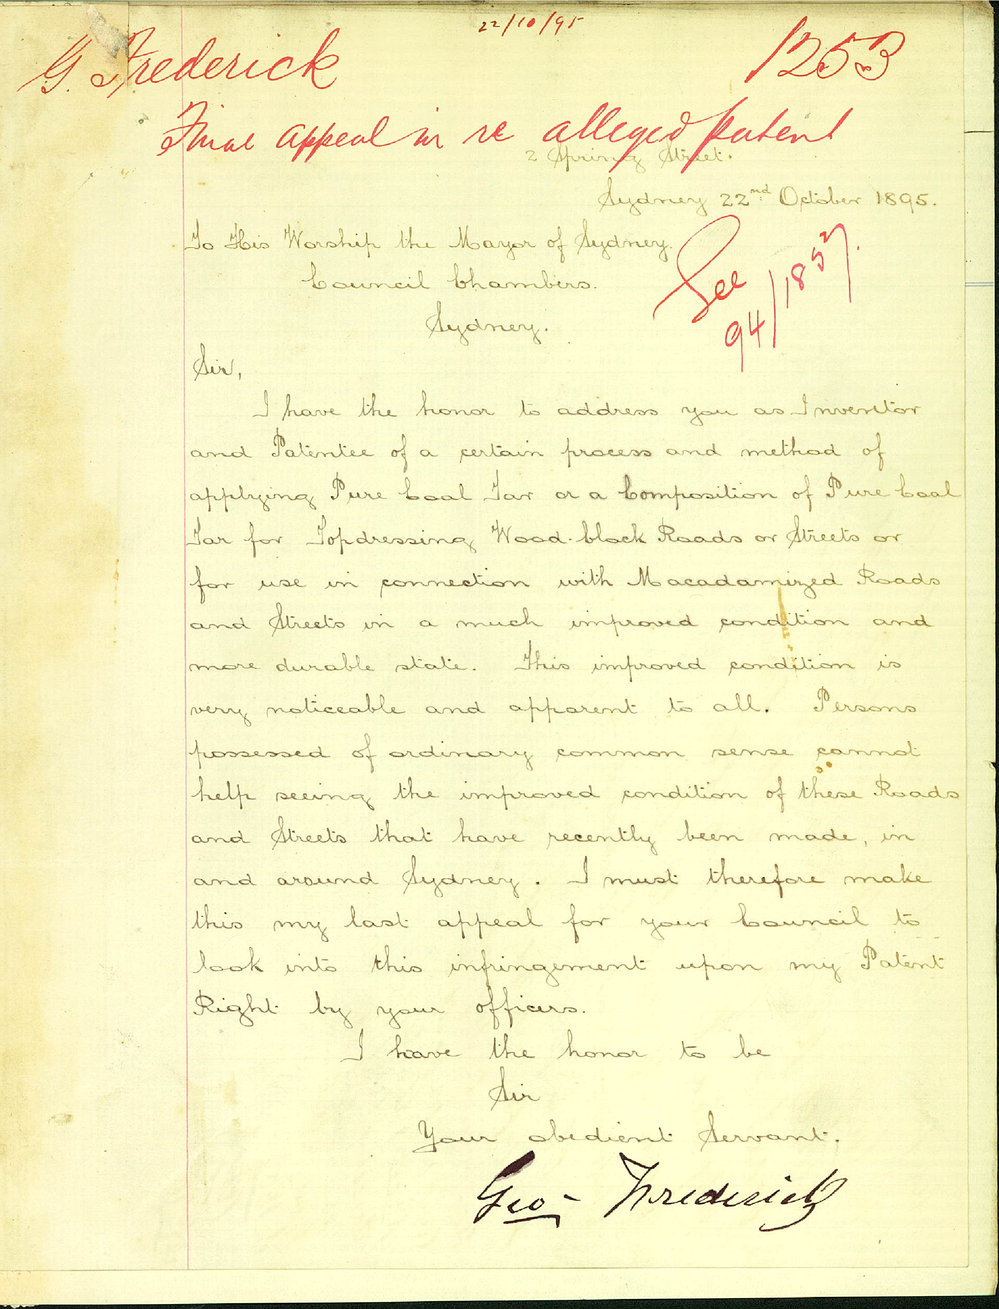 22/10/95
G. Frederick
1253
Final appeal in re alleged patent
2 Spring Street.
Sydney 22nd October 1895.
To His Worship the Mayor of Sydney.
Council Chambers.
Sydney.
See
94/1857.
Sir,
I have the honor to address you as Inventor
and Patentee of a certain process and method of
applying Pure Coal Tar or a Composition of Pure Coal
Tar for Topdressing Wood-block Roads or Streets or
for use in connection with Macadamized Roads
and Streets in a much improved condition and
more durable state. This improved condition is
very noticeable and apparent to all. Persons
possessed of ordinary common sense cannot
help seeing the improved condition of these Roads
and Streets that have recently been made, in
and around Sydney. I must therefore make
this my last appeal for your Council to
look into this infringement upon my Patent
Right by your officers.
I have the honor to be
Sir
Your obedient Servant.
Geo- Frederick